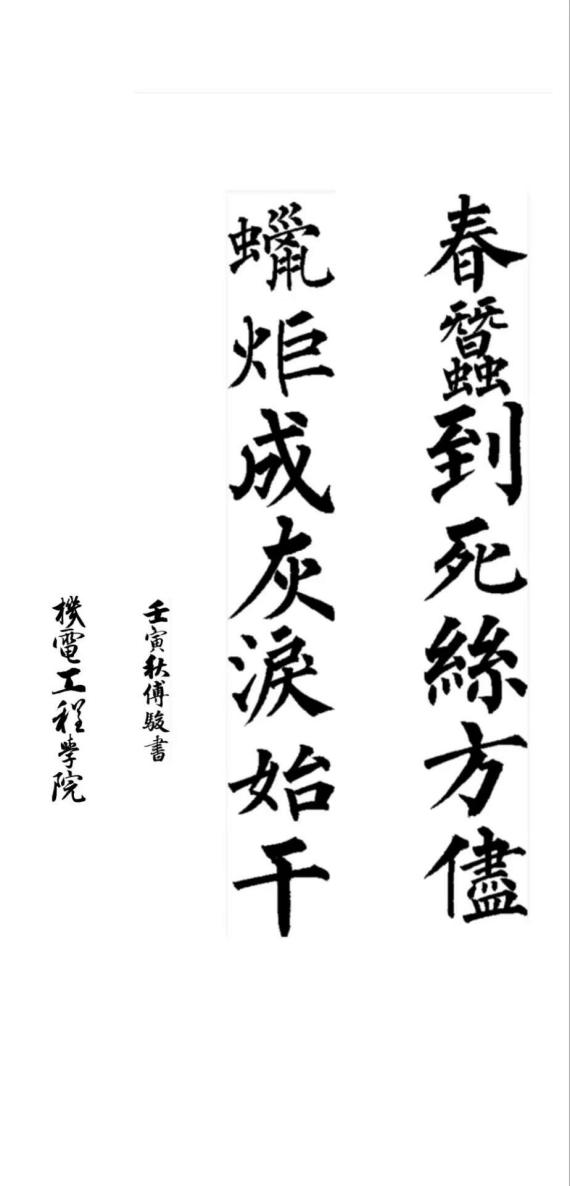 春蠶到死絲方儘
蠟炬成灰淚始干
壬寅秋傅駿書
機電工程學院